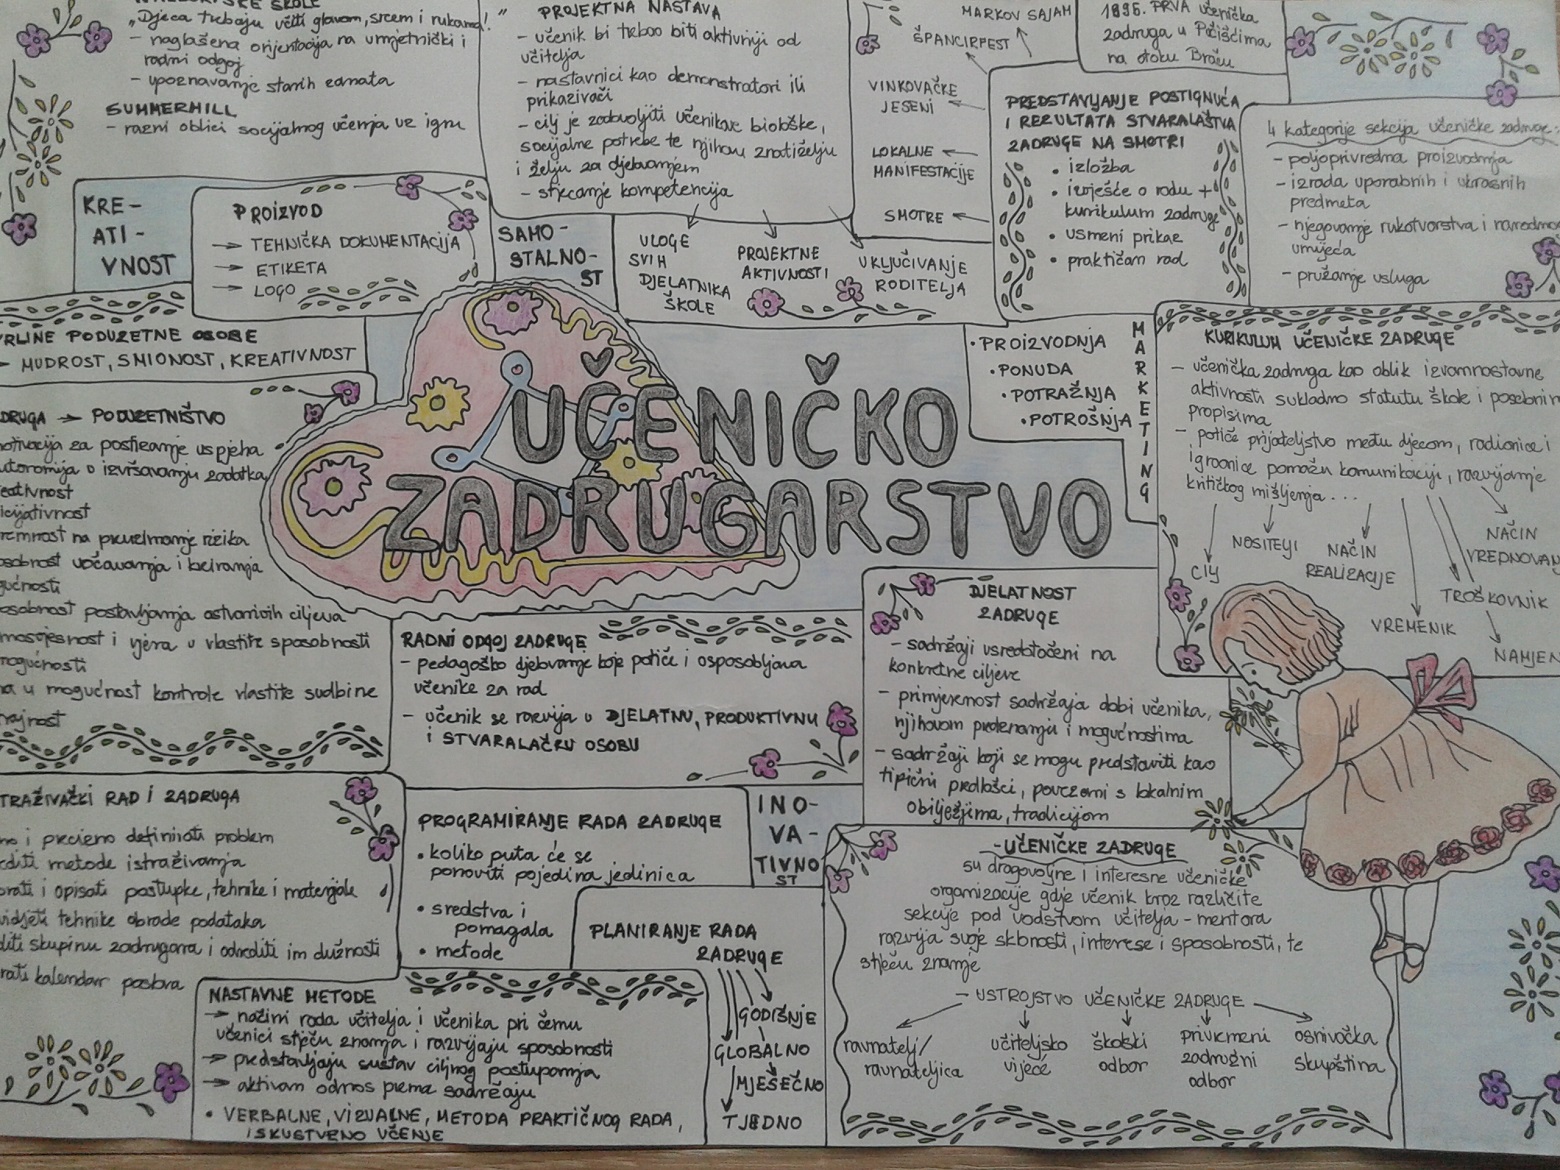 „Djeca trebaju učiti glavom, srcem i rukama!"
- naglašena orijentacija na umjetnički i
radni odgoj
- upoznavanje starih zanata
SUMMERHILL
- razni oblici socijalnog učenja uz igru
PROJEKTNA NASTAVA
- učenik bi trebao biti aktivniji od
učitelja
- nastavnici kao demonstratori ili
prikazivači
- cilj je zadovoljiti učenikove biološke,
socijalne potrebe te njihovu znatiželju
i želju za djelovanjem
- stjecanje kompetencija
ULOGE
SVIH
DJELATNIKA
ŠKOLE
PROJEKTNE
AKTIVNOSTI
UKLJUČIVANJE
RODITELJA
MARKOV SAJAM
ŠPANCIRFEST
VINKOVAČKE
JESENI
LOKALNE
MANIFESTACIJE
SMOTRE
PRVA učenička
zadruga u Pučišćima
na otoku Braču
PREDSTAVLJANJE POSTIGNUĆA
I REZULTATA STVARALAŠTVA
ZADRUGE NA SMOTRI
• izložba
• izvješće o radu +
kurikulum zadruge
• usmeni prikaz
• praktičan rad
4 kategorije sekcija učeničke zadruge:
- poljoprivredna proizvodnja
- izrada uporabnih i ukrasnih
predmeta
- njegovanje rukotvorstva i narodnog
umijeća
- pružanje usluga
KRE-
ATI-
VNOST
PROIZVOD
→ TEHNIČKA DOKUMENTACIJA
→ ETIKETA
→ LOGO
SAMO-
STALNO-
ST
VRLINE PODUZETNE OSOBE
- MUDROST, SMIONOST, KREATIVNOST
ZADRUGA → PODUZETNIŠTVO
motivacija za postizanje uspjeha
autonomija o izvršavanju zadatka
kreativnost
inicijativnost
spremnost na preuzimanje rizika
sposobnost uočavanja i biranja
mogućnosti
sposobnost postavljanja ostvarivih ciljeva
samosvjesnost i vjera u vlastite sposobnosti
mogućnosti
u mogućnost kontrole vlastite sudbine
UČENIČKO
ZADRUGARSTVO
• PROIZVODNJA
• PONUDA
• POTRAŽNJA
• POTROŠNJA
MARKETING
KURIKULUM UČENIČKE ZADRUGE
- učenička zadruga kao oblik izvannastavne
aktivnosti sukladno statutu škole i posebnim
propisima
- potiče prijateljstvo među djecom, radionice i
igraonice pomažu komunikaciji, razvijanje
kritičkog mišljenja...
CILJ
NOSITELJI
NAČIN
REALIZACIJE
VREMENIK
TROŠKOVNIK
NAČIN
VREDNOVAN
NAMJEN
RADNI ODGOJ ZADRUGE
- pedagoško djelovanje koje potiče i osposobljava
učenike za rad
- učenik se razvija u DJELATNU, PRODUKTIVNU
i STVARALAČKU OSOBU
DJELATNOST
ZADRUGE
- sadržaji usredotočeni na
konkretne ciljeve
- primjerenost sadržaja dobi učenika,
njihovom predznanju i mogućnostima
- sadržaji koji se mogu predstaviti kao
tipični predlošci, povezani s lokalnim
obilježjima, tradicijom
TRAŽIVAČKI RAD I ZADRUGA
i precizno definirati problem
metode istraživanja
i opisati postupke, tehnike i materijale
tehnike obrade podataka
skupinu zadrugara i odrediti im dužnosti
kalendar poslova
PROGRAMIRANJE RADA ZADRUGE
• koliko puta će se
ponoviti pojedina jedinica
• sredstva i
pomagala
• metode
INO-
VA-
TIVNO
ST
PLANIRANJE RADA
ZADRUGE
GODIŠNJE
GLOBALNO
MJESEČNO
TJEDNO
NASTAVNE METODE
→ načini rada učitelja i učenika pri čemu
učenici stječu znanja i razvijaju sposobnosti
→ predstavljaju sustav ciljnog postupanja
→ aktivan odnos prema sadržaju
• VERBALNE, VIZUALNE, METODA PRAKTIČNOG RADA,
ISKUSTVENO UČENJE
- UČENIČKE ZADRUGE
su dragovoljne i interesne učeničke
organizacije gdje učenik kroz različite
sekcije pod vodstvom učitelja - mentora
razvija svoje sklonosti, interese i sposobnosti, te
stječu znanje
- USTROJSTVO UČENIČKE ZADRUGE
ravnatelj/
ravnateljica
učiteljsko
vijeće
školski
odbor
privremeni
zadružni
odbor
osnivačka
skupština